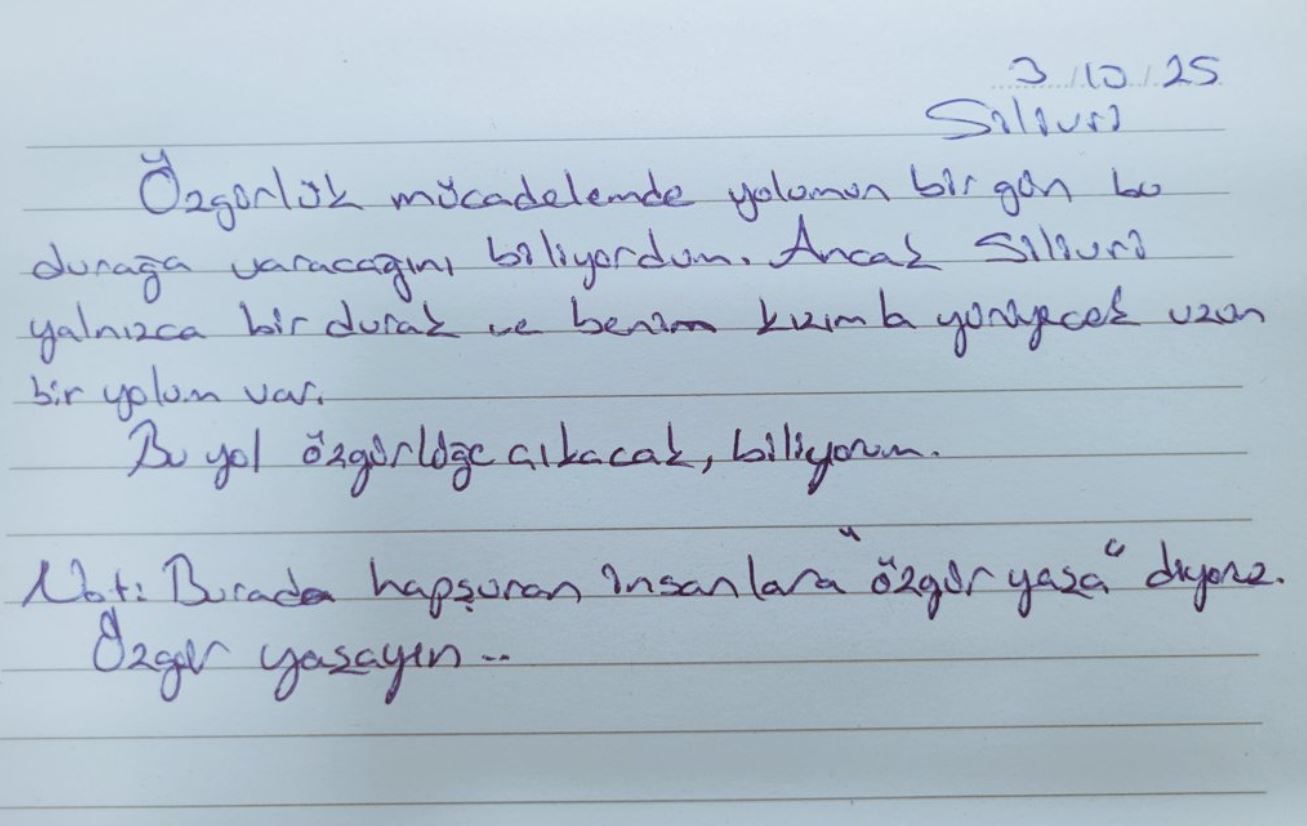 3/10/25
Silivri
Özgürlük mücadelemde yolumun bir gün bu
durağa varacağını biliyordum. Ancak Silivri
yalnızca bir durak ve benim kızımla yürüyecek uzun
bir yolum var.
Bu yol özgürlüğe çıkacak, biliyorum.
Not: Burada hapşuran insanlara "özgür yaşa" diyoruz.
Özgür yaşayın..